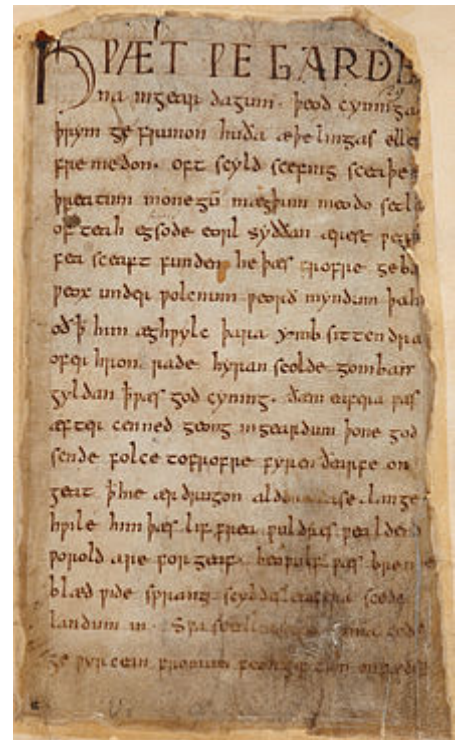 HǷÆT ǷE GARDE
na ingear dagum. þeod cyninga
þrym ge frunon huða æþelingas elle
fremedon. oft scyld scefing sceaþe
þreatum monegū mægþum meodo setla
of teah egsode eorl syððan ærest ƿear
fea sceaft funden he þæs frofre geba
ƿeox under ƿolcnum ƿeorð myndum þah
oð ꝥ him æghƿylc þara ymb sittendra
ofer hron rade hyran scolde gomban
gyldan ꝥ ƿæs god cyning. ðæm eafera ƿæs
æfter cenned geong ingeardum þone god
sende folce tofrofre fyren ðearfe on
geat ꝥ hie ær drugon aldor ase. lange
hƿile him þæs lif frea ƿuldres ƿealdend
ƿorold are for geaf. beoƿulf ƿæs breme
blæd ƿide sprang scyldes eafera scede
landum in. Sƿa
ge ƿyrcean fromum feoh giftum on fæder